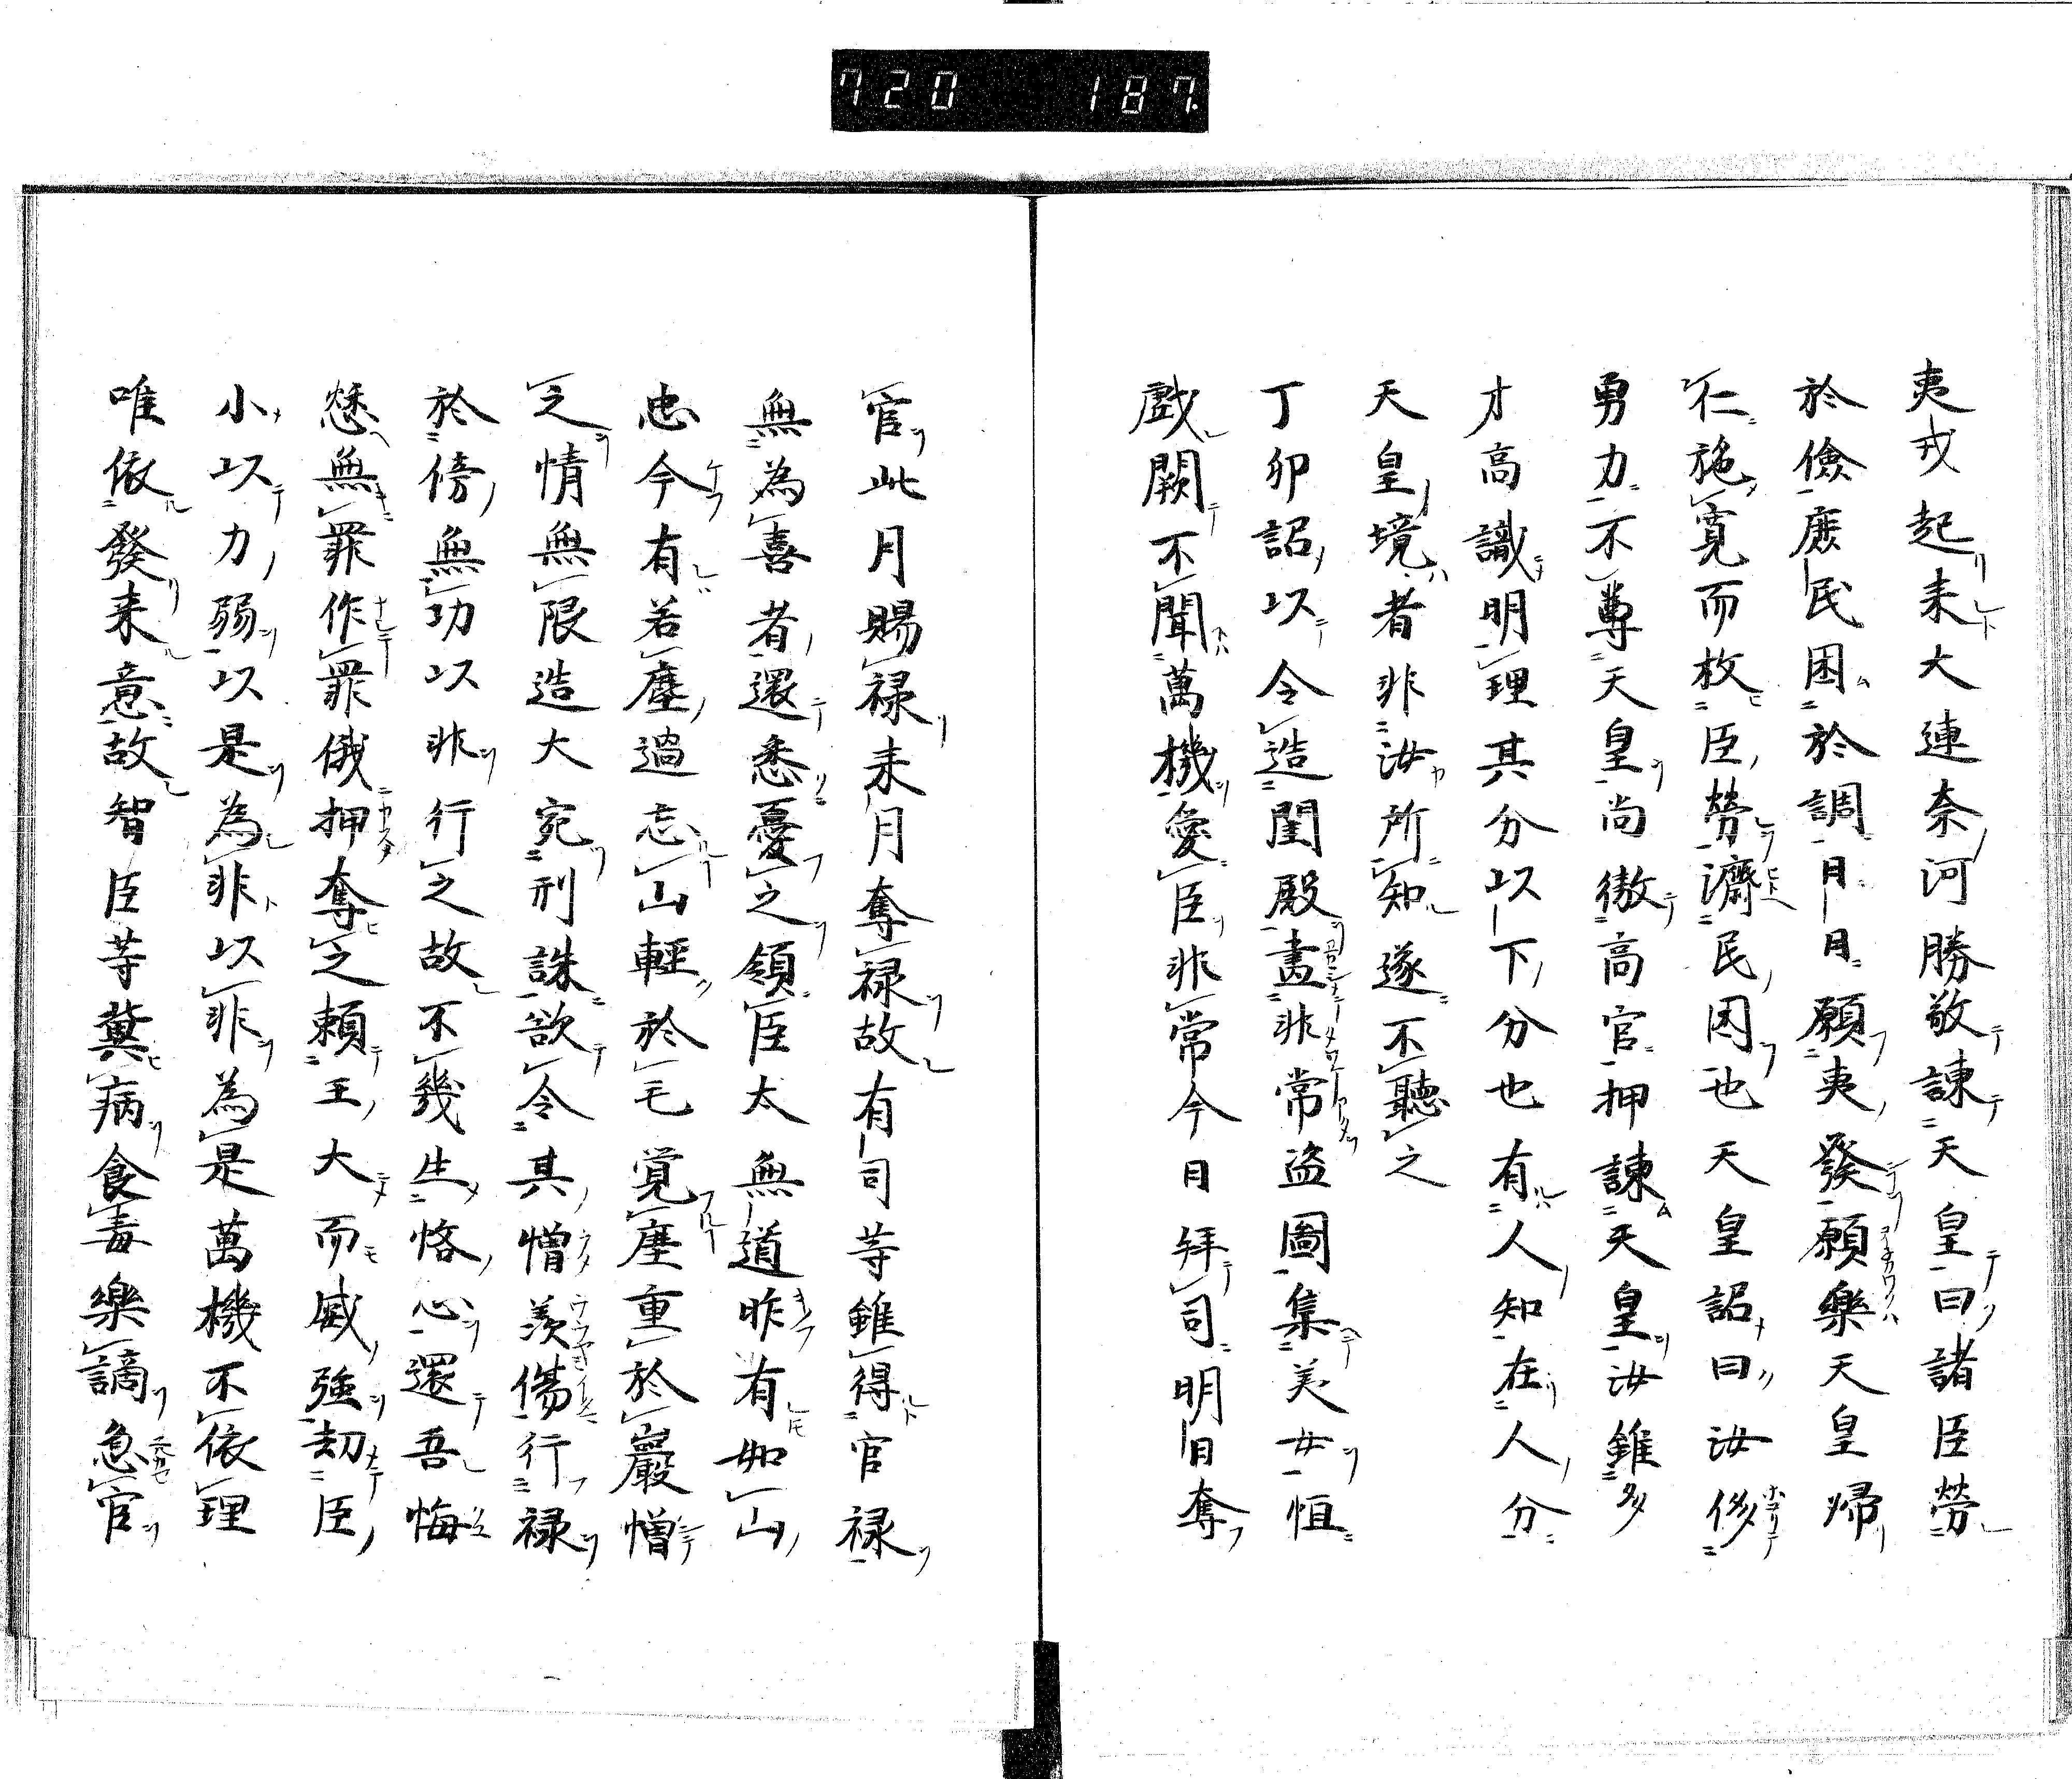 720 187.
夷戎起来大連奈河勝敬諌天皇曰諸臣勞
於儉庶民困於調月月願夷發願樂天皇帰
仁施寛而枚臣勞濟民困也天皇詔曰汝侈
勇力不尊天皇尚傲高官押諌天皇汝雖多
才高識明理其分以下分也有人知在人分
天皇境者非汝所知遂不聽之
丁卯詔以令造閨殿畫非常盗圖集美女恒
戲闕不聞萬機愛臣非常今日拜司明日奪
官此月賜禄来月奪禄故有司等雖得官禄
無為喜者還悉憂之領臣太無道昨有如山
忠今有若塵過忘山輕於毛覚塵重於巖憎
之情無限造大宛刑誅欲令其憎羨傷行禄
於傍無功以非行之故不幾生恪心還吾悔
愁無罪作罪俄押奪之頼王大而威強劫臣
小以力弱以是為非以非為是萬機不依理
唯依發来意故智臣等糞病食毒樂謫急官